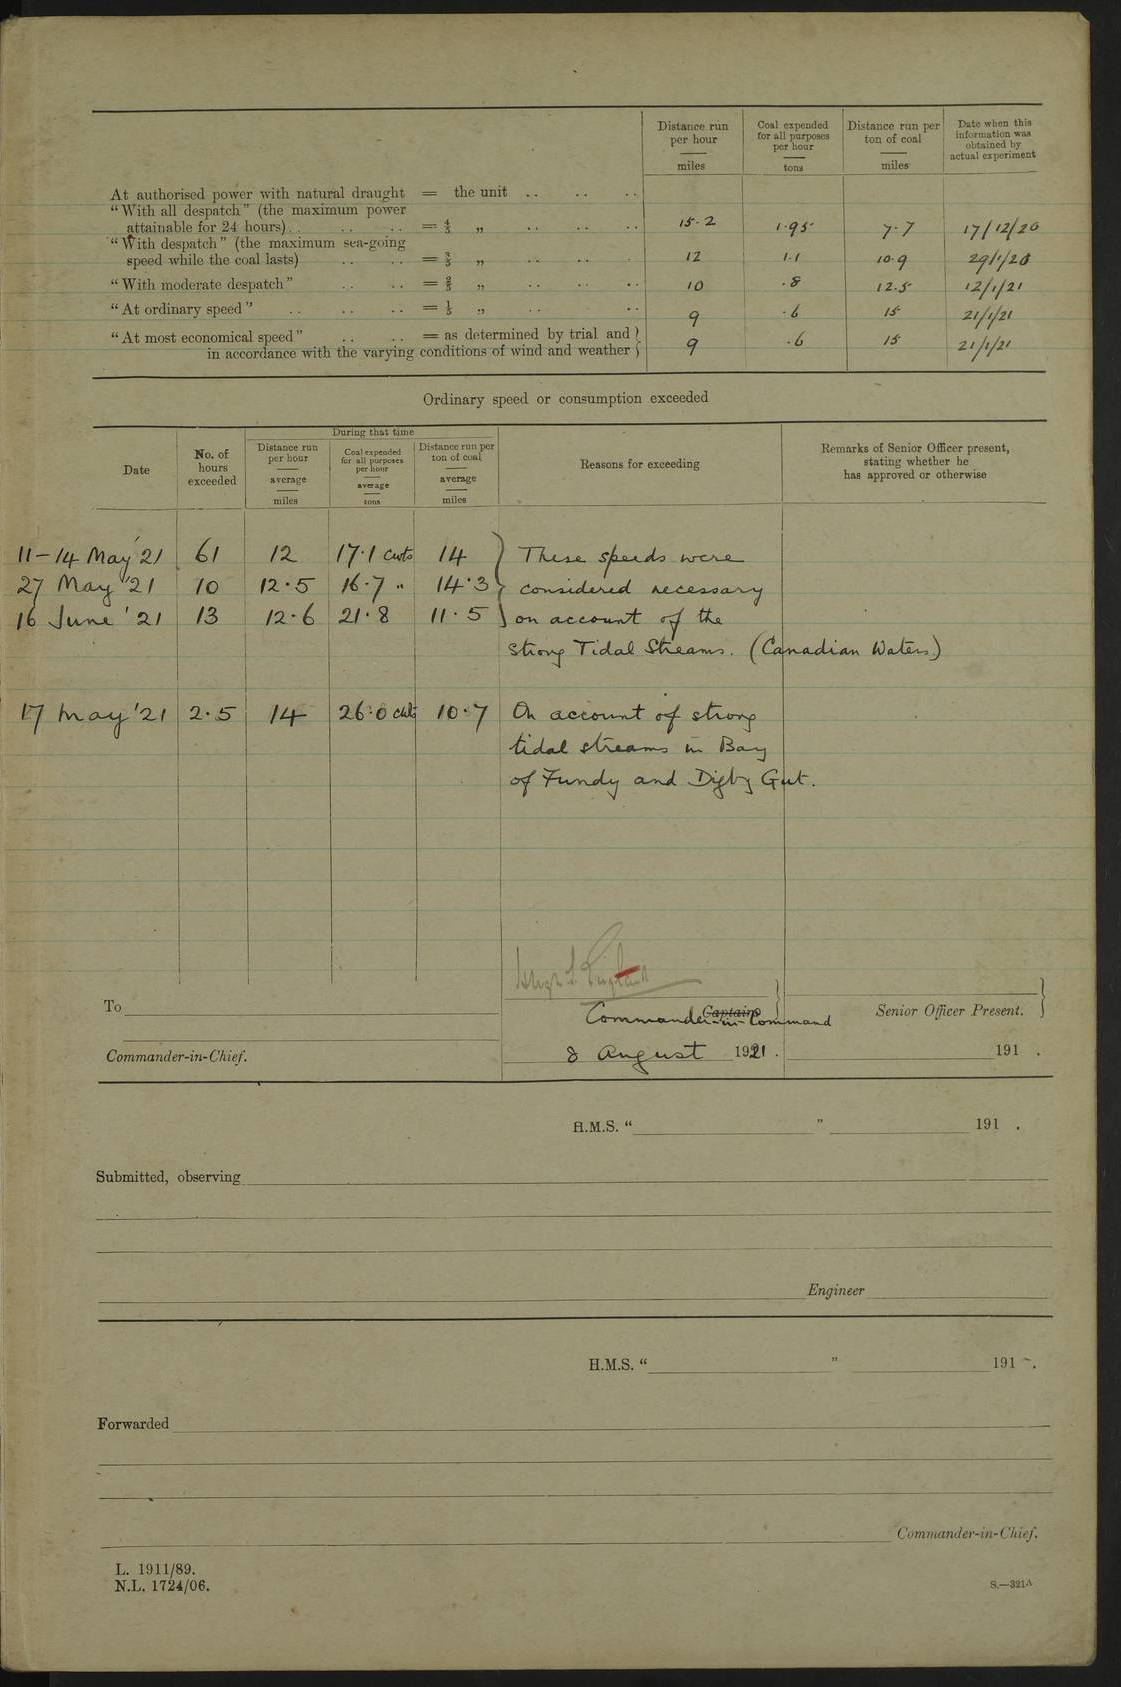 Distance run per hour — miles
Coal expended for all purposes per hour — tons
Distance run per ton of coal — miles
Date when this information was obtained by actual experiment
At authorised power with natural draught = the unit .. .. ..
"With all despatch" (the maximum power
attainable for 24 hours) .. .. .. = 4/5 „ .. .. .. .. 15·2 1·95 7·7 17/12/20
"With despatch" (the maximum sea-going
speed while the coal lasts) .. .. = 3/5 „ .. .. .. .. 12 1·1 10·9
"With moderate despatch" .. .. = 2/5 „ .. .. .. .. 10 ·8 12·5 12/1/21
"At ordinary speed" .. .. .. = 1/5 „ .. .. 9 ·6 15 21/1/21
"At most economical speed" .. .. = as determined by trial and }
in accordance with the varying conditions of wind and weather } 9 ·6 15 21/1/21
Ordinary speed or consumption exceeded
Date
No. of hours exceeded
During that time
Distance run per hour — average — miles
Coal expended for all purposes per hour — average — tons
Distance run per ton of coal — average — miles
Reasons for exceeding
Remarks of Senior Officer present, stating whether he has approved or otherwise
11–14 May '21 61 12 17·1 cwts 14 } These speeds were
27 May '21 10 12·5 16·7 " 14·3 } considered necessary
16 June '21 13 12·6 21·8 11·5 } on account of the
strong Tidal Streams. (Canadian Waters.)
17 May '21 2·5 14 26·0 cwts 10·7 On account of strong
tidal streams in Bay
of Fundy and Digby Gut.
To
Captain
Commander-in-Command
Senior Officer Present.
Commander-in-Chief.
8 August 1921.
191 .
H.M.S. " " 191 .
Submitted, observing
Engineer
H.M.S. " " 191 .
Forwarded
Commander-in-Chief.
L. 1911/89.
N.L. 1724/06.
S.—321A